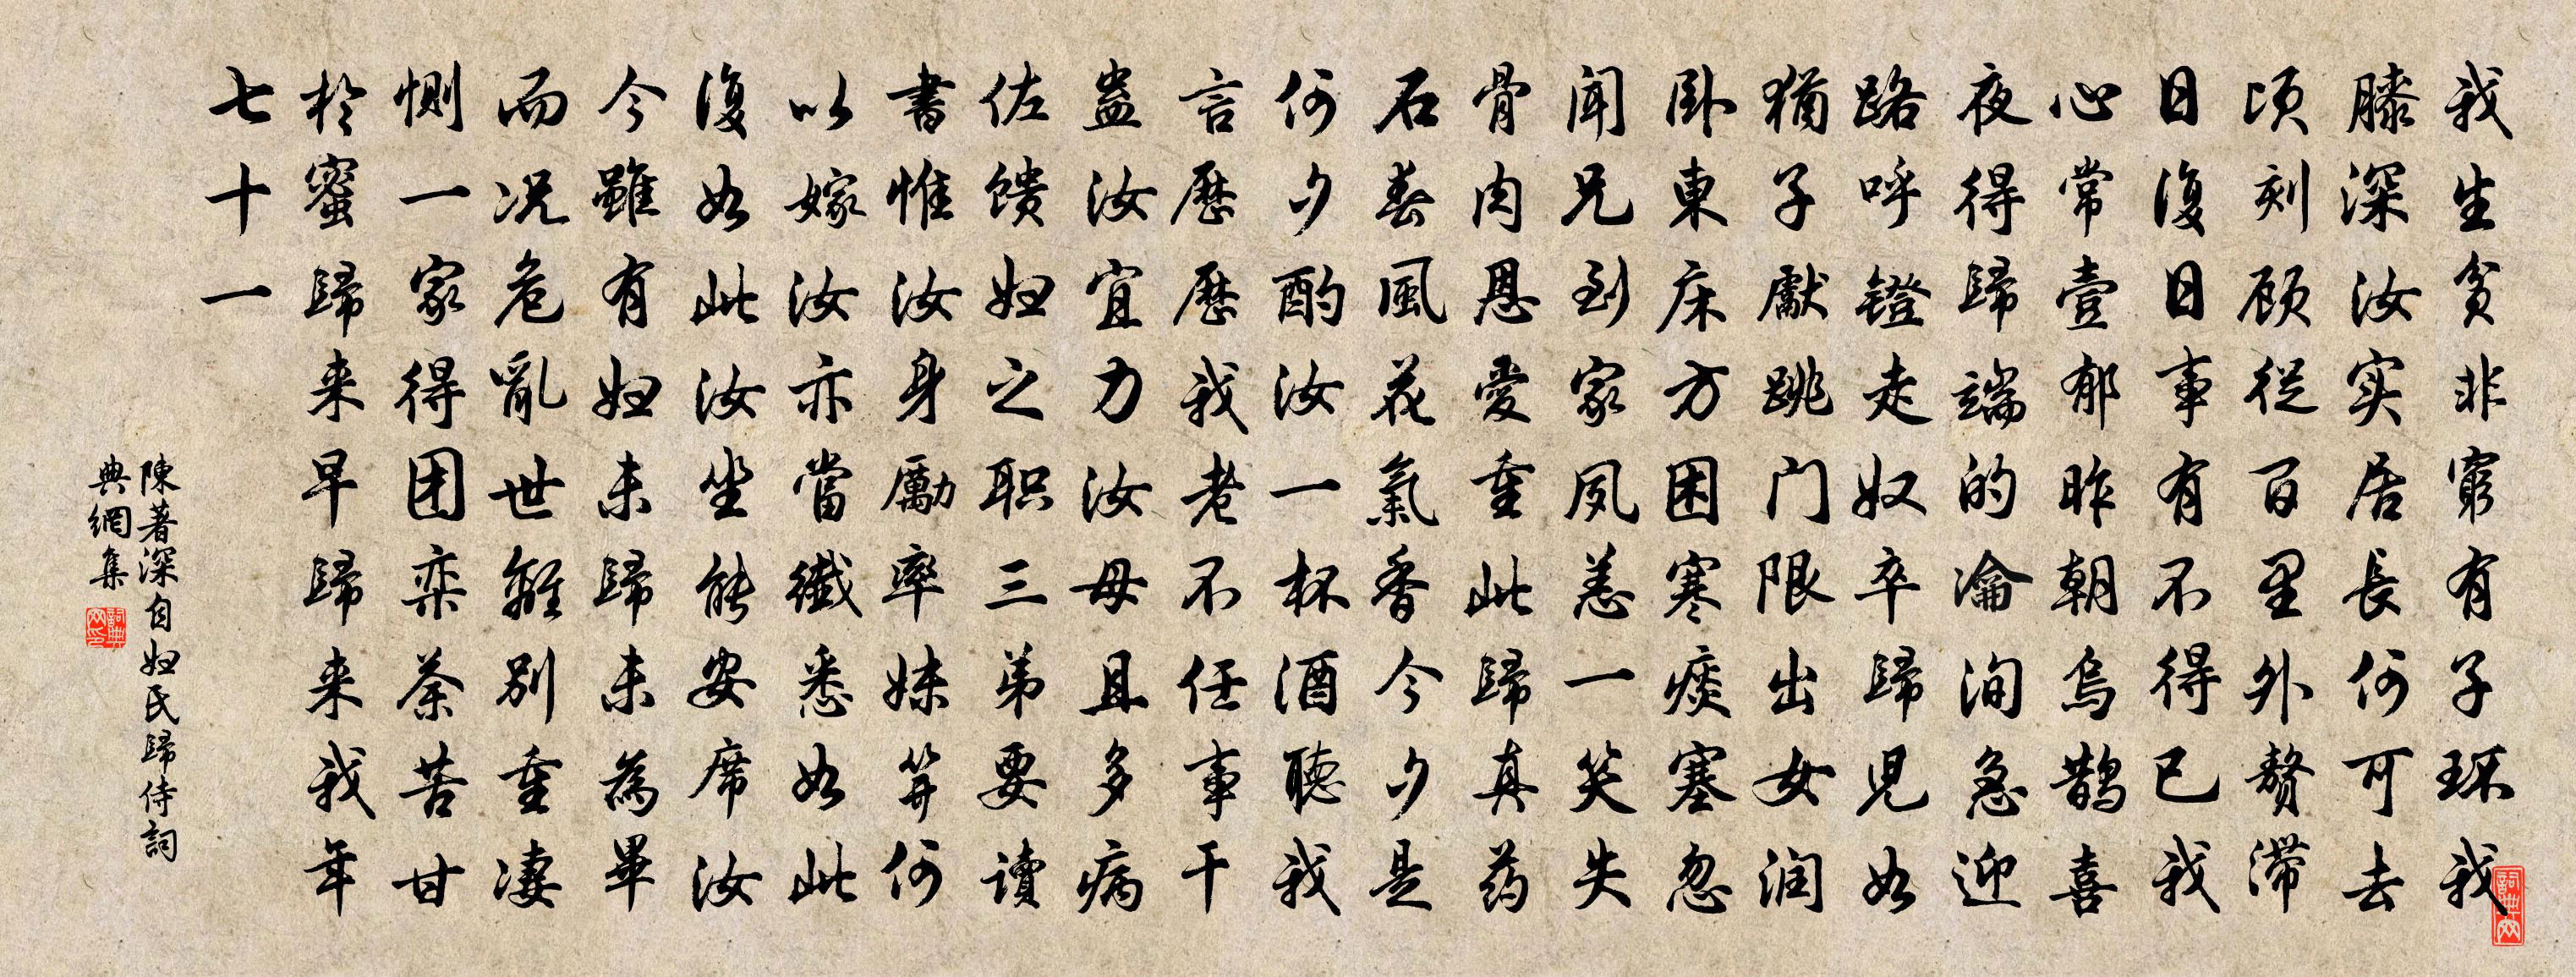 我生貧非窮有子环我
膝深汝实居長何可去
頃刻顾從百里外赘滞
日復日事有不得已我
心常壹郁昨朝烏鹊喜
夜得歸端的瀹洵急迎
路呼镫走奴卒歸児如
猶子獻跳门限出女润
卧東床方困寒痰塞忽
闻兄到家夙恙一笑失
骨肉恩愛重此歸真药
石春風花氣香今夕是
何夕酌汝一杯酒聽我
言歷歷我老不任事干
蛊汝宜力汝母且多病
佐馈妇之职三弟要读
書惟汝身勵率妹笄何
以嫁汝亦當纖悉如此
復如此汝坐能安席汝
今雖有妇未歸未為畢
而况危亂世離别重凄
惻一家得团栾荼苦甘
於蜜歸来早歸来我年
七十一
陳著深自妇氏歸侍詞
典網集
詞典网印
詞典网